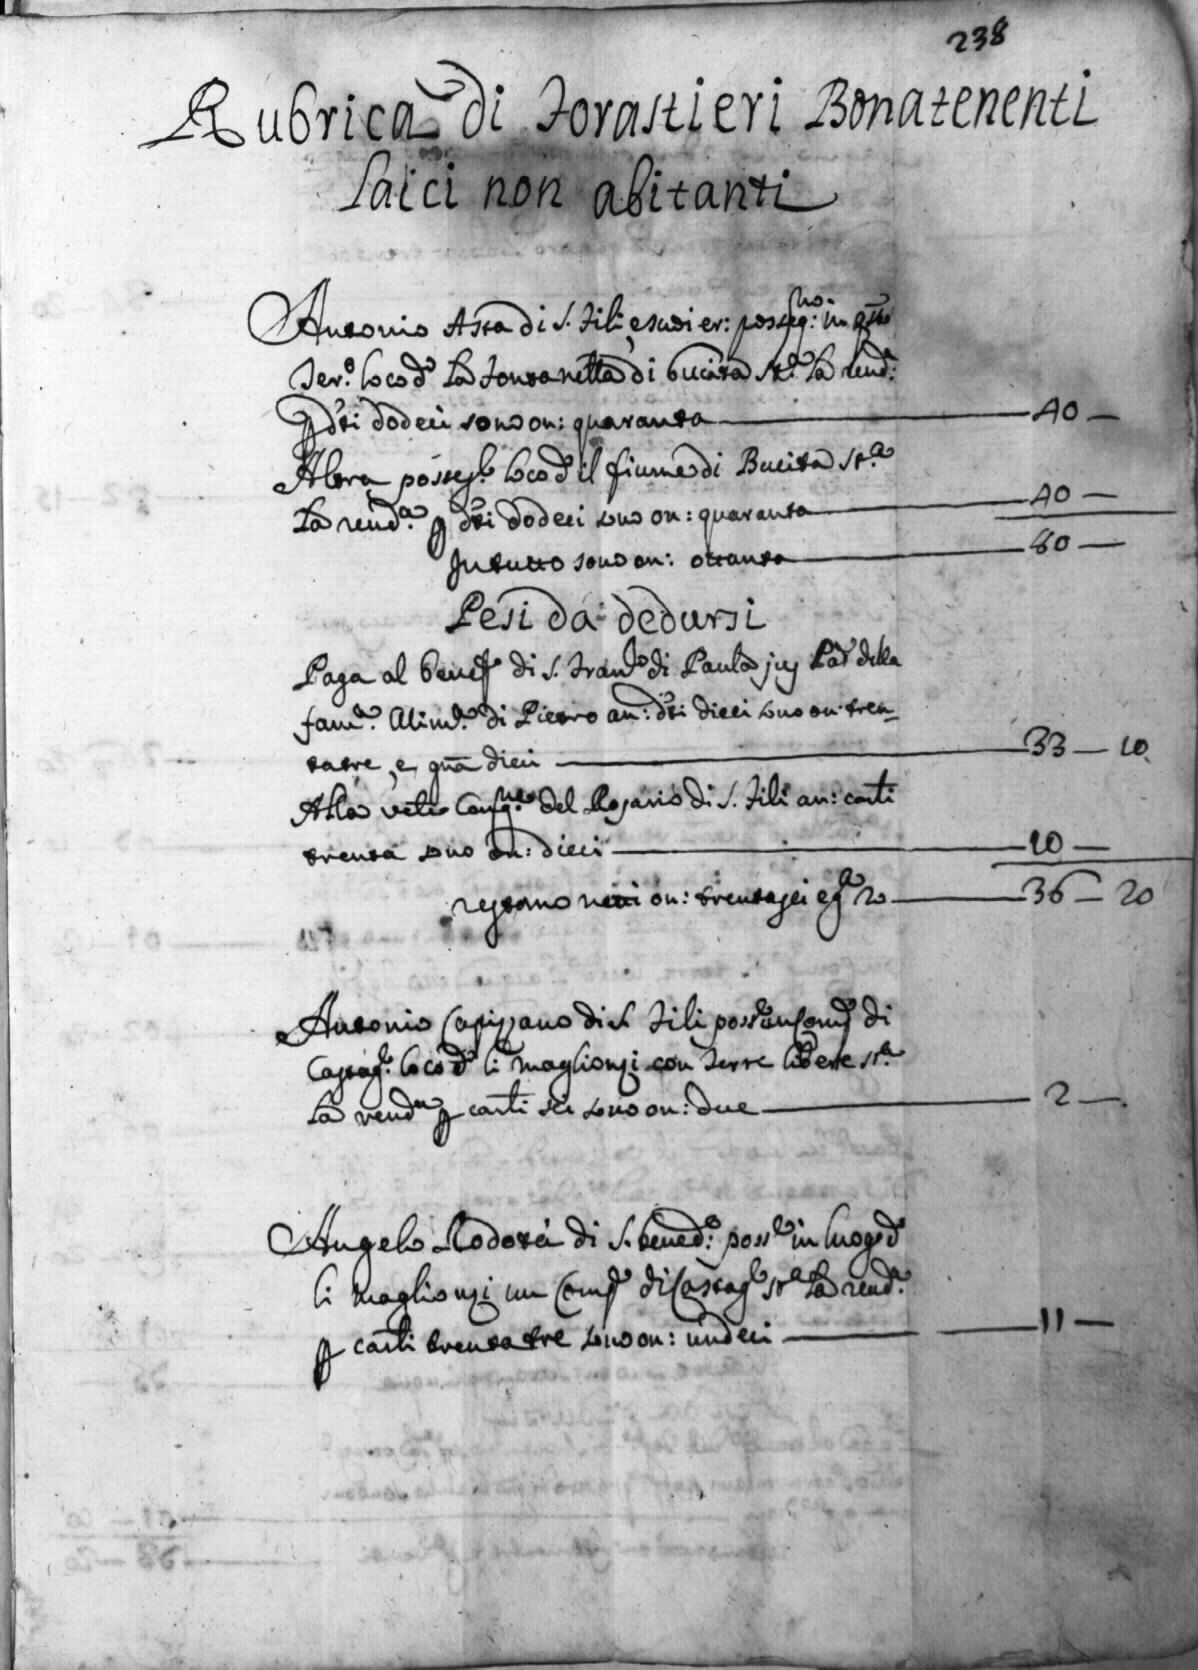 238
Rubrica di Forastieri Bonatenenti
laici non abitanti
Antonio Asta di S. Fili, possg:no in
Ter.o loco d.o la Fontanella di Bucita st.e la rend.a
p d.ti dodeci sono on: quaranta 40 —
Altra possess.e loco d.o il fiume di Bucita st.e
la rend.a p d.ti dodeci sono on: quaranta 40 —
In tutto sono on: ottanta 80 —
Pesi da dedursi
Paga al benef.o di S. Fran.co di Paula jus Pad. della
fam.a Alim.a di Pietro an: d.ti dieci sono on: tren-
tatre, e gna dieci 33 — 10
Alla ven.le Conf.ne del Rosario di S. Fili an: carli
trenta sono on: dieci 10 —
restano netti on: trentasei e g.a 20 36 — 20
Antonio Capizzano di S. Fili poss.e un Comp.o di
Castag.e loco d.o li maglionzi con terre libere st.e
la rend.a p carli sei sono on: due 2 —
Angelo Rodotà di S. bened.o poss.e in luogo d.o
li maglionzi un Comp.o di Castag.e st.e la rend.a
p carli trenta tre sono on: undeci 11 —